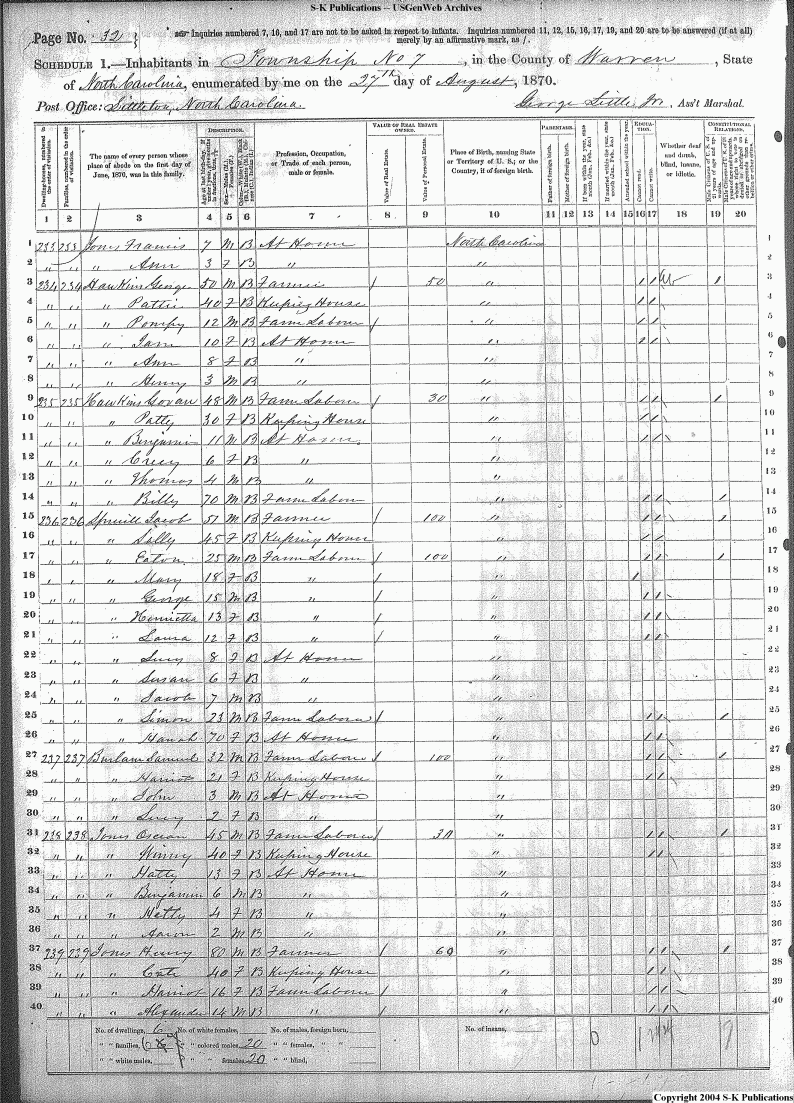 S-K Publications – USGenWeb Archives
Page No. 32
Inquiries numbered 7, 16, and 17 are not to be asked in respect to infants. Inquiries numbered 11, 12, 15, 16, 17, 19, and 20 are to be answered (if at all) merely by an affirmative mark, as /.
SCHEDULE 1.—Inhabitants in Township No 7, in the County of Warren, State
of North Carolina, enumerated by me on the 27th day of August, 1870.
Post Office: Littleton, North Carolina. George Little Jr, Ass't Marshal.
Dwelling-houses, numbered in the order of visitation.
Families, numbered in the order of visitation.
The name of every person whose place of abode on the first day of June, 1870, was in this family.
DESCRIPTION.
Profession, Occupation, or Trade of each person, male or female.
VALUE OF REAL ESTATE OWNED.
Value of Real Estate.
Value of Personal Estate.
Place of Birth, naming State or Territory of U. S.; or the Country, if of foreign birth.
PARENTAGE.
Father of foreign birth.
Mother of foreign birth.
If born within the year, state month (Jan., Feb., &c.)
If married within the year, state month (Jan., Feb., &c.)
EDUCATION.
Attended school within the year.
Cannot read.
Cannot write.
Whether deaf and dumb, blind, insane, or idiotic.
CONSTITUTIONAL RELATIONS.
1 2 3 4 5 6 7 8 9 10 11 12 13 14 15 16 17 18 19 20
1 233 233 Jones Francis 7 M B At Home North Carolina 1
2 " " " Ann 3 F B " " 2
3 234 234 Hawkins George 50 M B Farmer / 50 " / / / 3
4 " " " Pattie 40 F B Keeping House " / / 4
5 " " " Pompy 12 M B Farm Labour / " / / 5
6 " " " Jane 10 F B At Home " / / 6
7 " " " Ann 8 F B " " 7
8 " " " Henry 3 M B " " 8
9 235 235 Hawkins Govan 48 M B Farm Labour / 30 " / / / 9
10 " " " Patty 30 F B Keeping House " / / 10
11 " " " Benjamin 11 M B At Home " / / 11
12 " " " Creey 6 F B " " 12
13 " " " Thomas 4 M B " " 13
14 " " " Billy 70 M B Farm Labour " / / / 14
15 236 236 Spruill Jacob 51 M B Farmer / 100 " / / / 15
16 " " " Sally 45 F B Keeping House " / / 16
17 " " " Eaton 25 M B Farm Labour / 100 " / / / 17
18 " " " Mary 18 F B " / " / 18
19 " " " George 15 M B " / " / / 19
20 " " " Henrietta 13 F B " / " / / 20
21 " " " Laura 12 F B " / " / / 21
22 " " " Lucy 8 F B At Home " 22
23 " " " Susan 6 F B " " 23
24 " " " Jacob 7 M B " " 24
25 " " " Simon 23 M B Farm Labour / " / / / 25
26 " " " Hanah 70 F B At Home " / / 26
27 237 237 Burlam Samuel 32 M B Farm Labour / 100 " / / / 27
28 " " " Harriot 21 F B Keeping House " / / 28
29 " " " John 3 M B At Home " 29
30 " " " Lucy 2 F B " " 30
31 238 238 Jones Oscean 45 M B Farm Labour / 30 " / / / 31
32 " " " Winny 40 F B Keeping House " / / 32
33 " " " Hatty 13 F B At Home " 33
34 " " " Benjamin 6 M B " " 34
35 " " " Hetty 4 F B " " 35
36 " " " Aaron 2 M B " " 36
37 239 239 Jones Henry 80 M B Farmer / 60 " / / / 37
38 " " " Cate 40 F B Keeping House " / / 38
39 " " " Harriot 16 F B Farm Labour / " / / 39
40 " " " Alexander 14 M B " / " / / 40
No. of dwellings, 6 No. of white females, No. of males, foreign born, No. of insane,
" " families, " " colored males, 20 " " females, " "
" " white males, " " " females, 20 " " blind,
Copyright 2004 S-K Publications